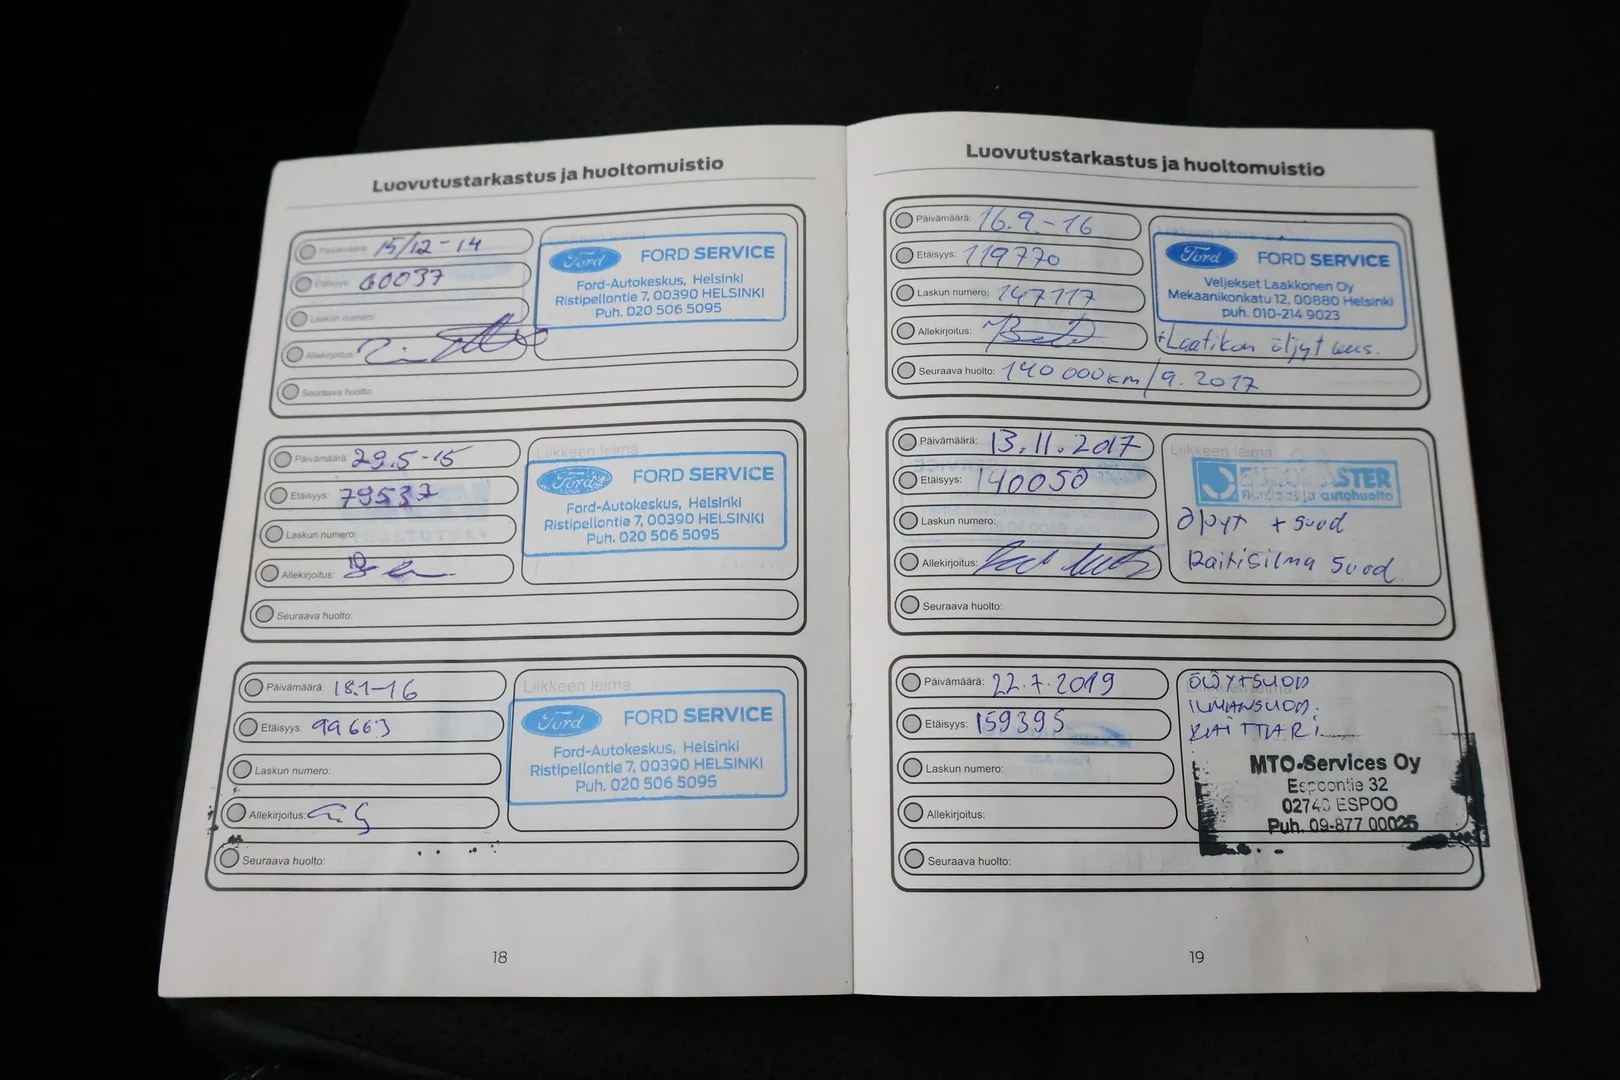 Luovutustarkastus ja huoltomuistio
Päivämäärä: 15/12-14
Etäisyys: 60037
Laskun numero:
Allekirjoitus:
Seuraava huolto:
Liikkeen leima
Ford FORD SERVICE
Ford-Autokeskus, Helsinki
Ristipellontie 7, 00390 HELSINKI
Puh. 020 506 5095
Päivämäärä: 29.5-15
Etäisyys: 79537
Laskun numero:
Allekirjoitus:
Seuraava huolto:
Liikkeen leima
Ford FORD SERVICE
Ford-Autokeskus, Helsinki
Ristipellontie 7, 00390 HELSINKI
Puh. 020 506 5095
Päivämäärä: 18.1-16
Etäisyys: 99663
Laskun numero:
Allekirjoitus:
Seuraava huolto:
Liikkeen leima
Ford FORD SERVICE
Ford-Autokeskus, Helsinki
Ristipellontie 7, 00390 HELSINKI
Puh. 020 506 5095
18
Luovutustarkastus ja huoltomuistio
Päivämäärä: 16.9.-16
Etäisyys: 119770
Laskun numero: 147117
Allekirjoitus:
Seuraava huolto: 140 000km/9.2017
Ford FORD SERVICE
Veljekset Laakkonen Oy
Mekaanikonkatu 12, 00880 Helsinki
puh. 010-214 9023
+Laatikon öljyt
Päivämäärä: 13.11.2017
Etäisyys: 140050
Laskun numero:
Allekirjoitus:
Seuraava huolto:
Liikkeen leima
EUROMASTER
Rengas ja autohuolto
Öljyt + suod
Raitisilma suod.
Päivämäärä: 22.7.2019
Etäisyys: 159395
Laskun numero:
Allekirjoitus:
Seuraava huolto:
Liikkeen leima
ÖLJYTSUOD.
ILMANSUOD.
RAITTARI
MTO-Services Oy
Espoontie 32
02740 ESPOO
Puh. 09-877 00025
19